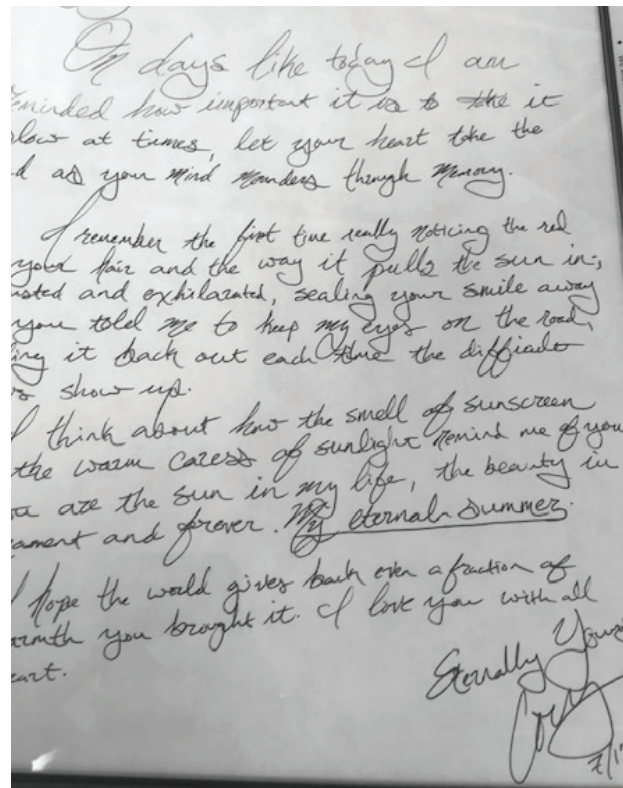 On days like today I am
eminded how important it is to take it
slow at times, let your heart take the
d as your mind meanders through memory.
I remember the first time really noticing the red
your hair and the way it pulls the sun in,
and exhilarated, sealing your smile away
you told me to keep my eyes on the road,
ing it back out each time the difficult
show up.
I think about how the smell of sunscreen
the warm caress of sunlight remind me of you
are the sun in my life, the beauty in
ament and forever. My eternal summer.
I hope the world gives back even a fraction of
armth you brought it. I love you with all
eart.
Eternally Yours